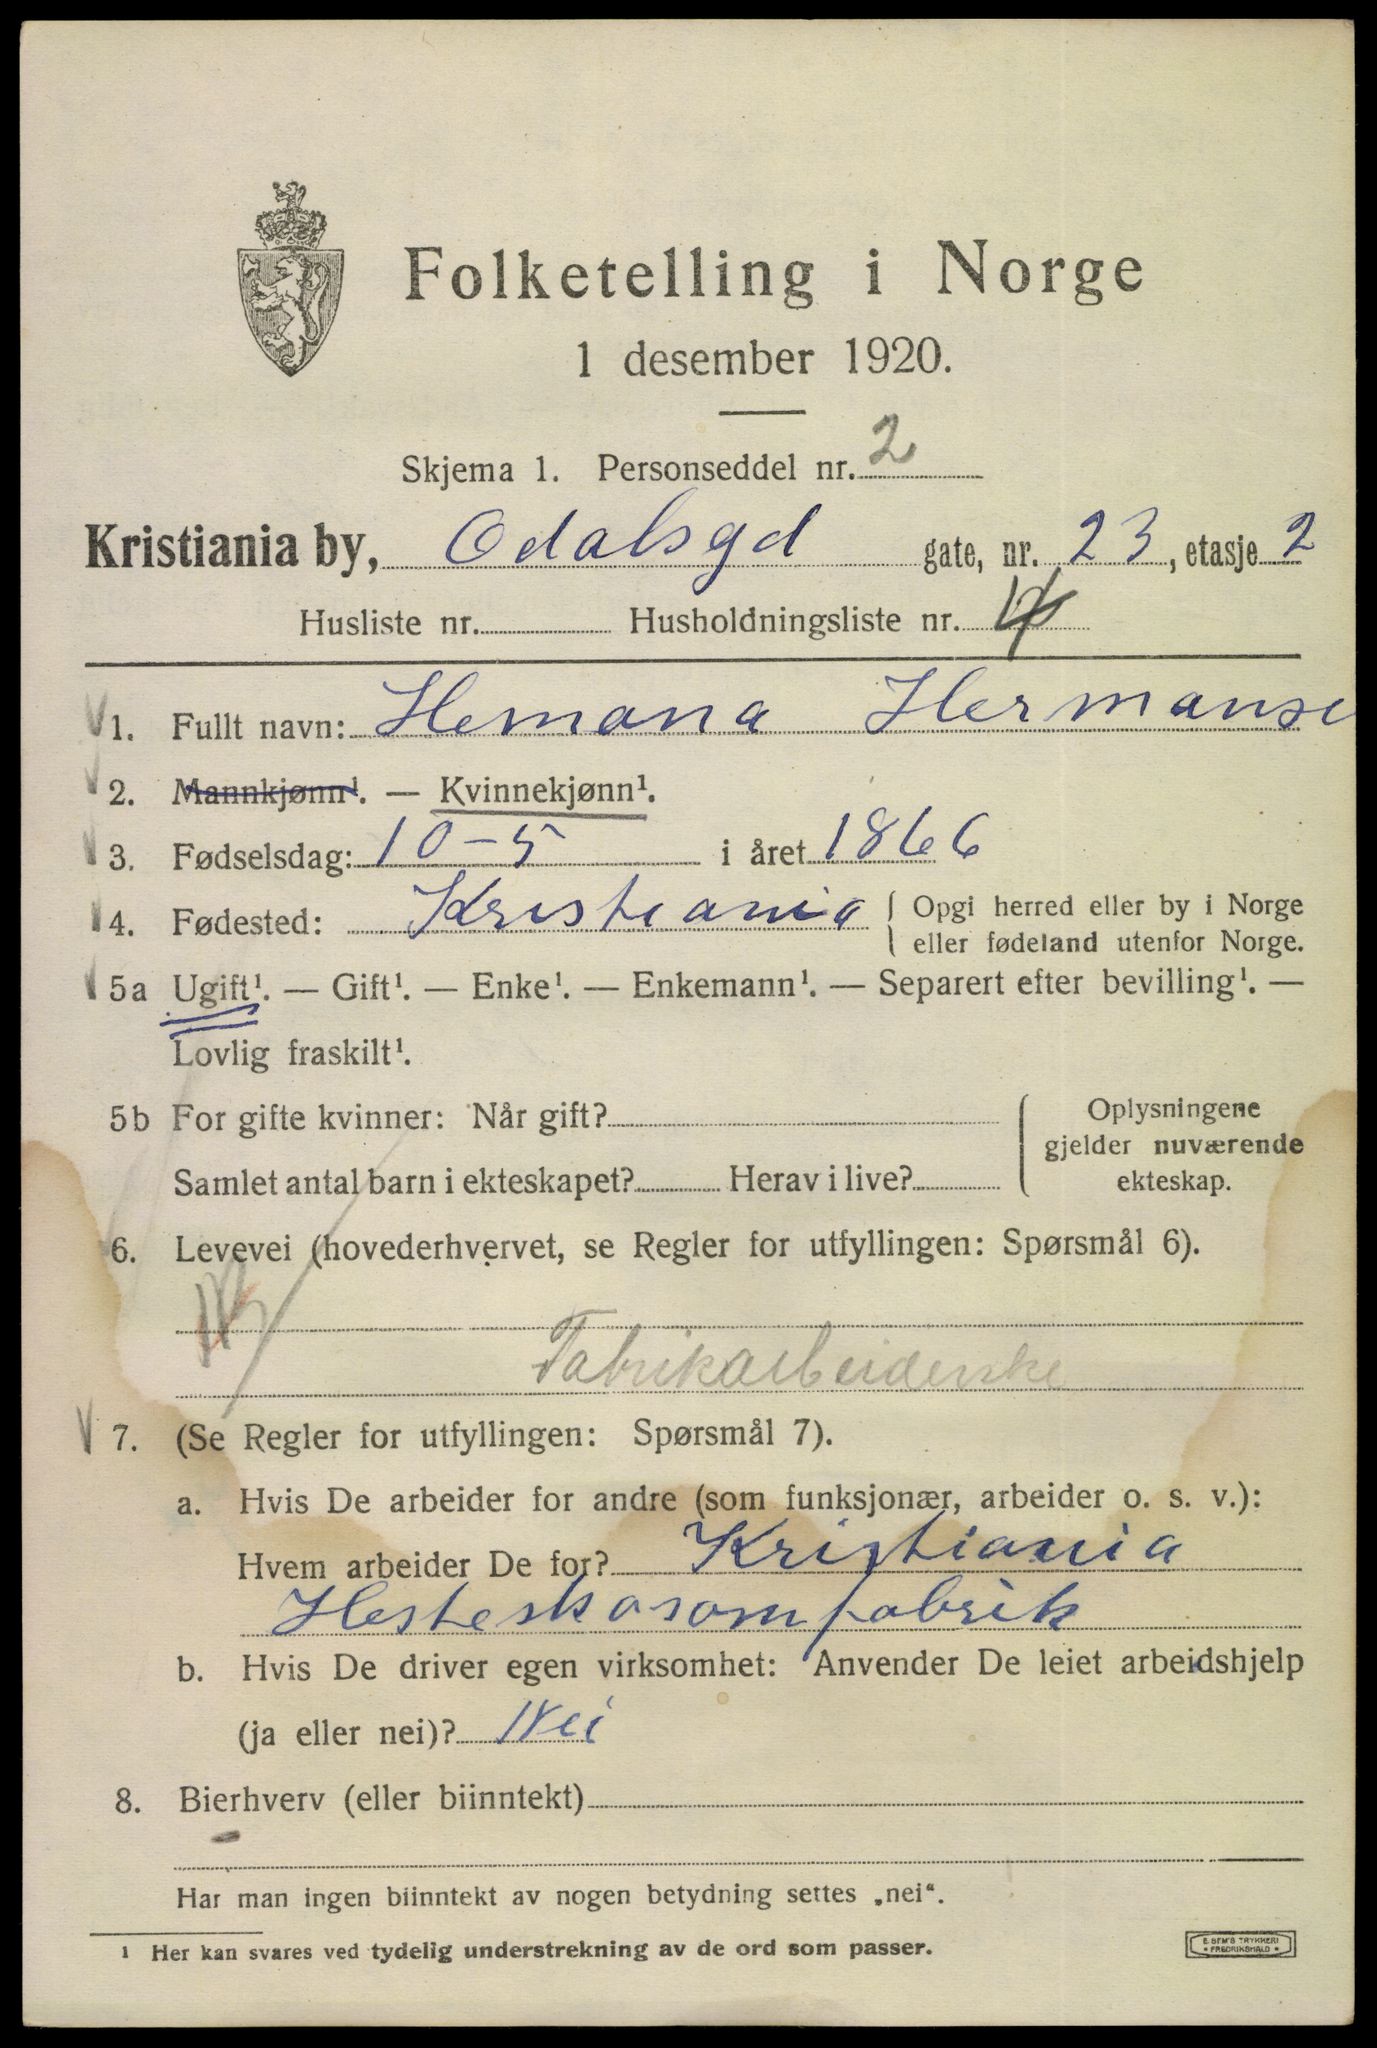 Folketelling i Norge
1 desember 1920.
Skjema 1. Personseddel nr. 2
Kristiania by, Odalsgd gate, nr. 23, etasje 2
Husliste nr. Husholdningsliste nr.
1. Fullt navn: Hemana Hermanse
2. Mannkjønn¹. — Kvinnekjønn¹.
3. Fødselsdag: 10-5 i året 1866
4. Fødested: Kristiania { Opgi herred eller by i Norge
eller fødeland utenfor Norge.
5a Ugift¹. — Gift¹. — Enke¹. — Enkemann¹. — Separert efter bevilling¹. —
Lovlig fraskilt¹.
5b For gifte kvinner: Når gift? { Oplysningene
gjelder nuværende
Samlet antal barn i ekteskapet? Herav i live? ekteskap.
6. Levevei (hovederhvervet, se Regler for utfyllingen: Spørsmål 6).
Fabrikarbeiderske
7. (Se Regler for utfyllingen: Spørsmål 7).
a. Hvis De arbeider for andre (som funksjonær, arbeider o. s. v.):
Hvem arbeider De for? Kristiania
Hesteskosømfabrik
b. Hvis De driver egen virksomhet: Anvender De leiet arbeidshjelp
(ja eller nei)? Nei
8. Bierhverv (eller biinntekt)
Har man ingen biinntekt av nogen betydning settes „nei“.
¹ Her kan svares ved tydelig understrekning av de ord som passer.
E. SEM'S TRYKKERI
• FREDRIKSHALD •